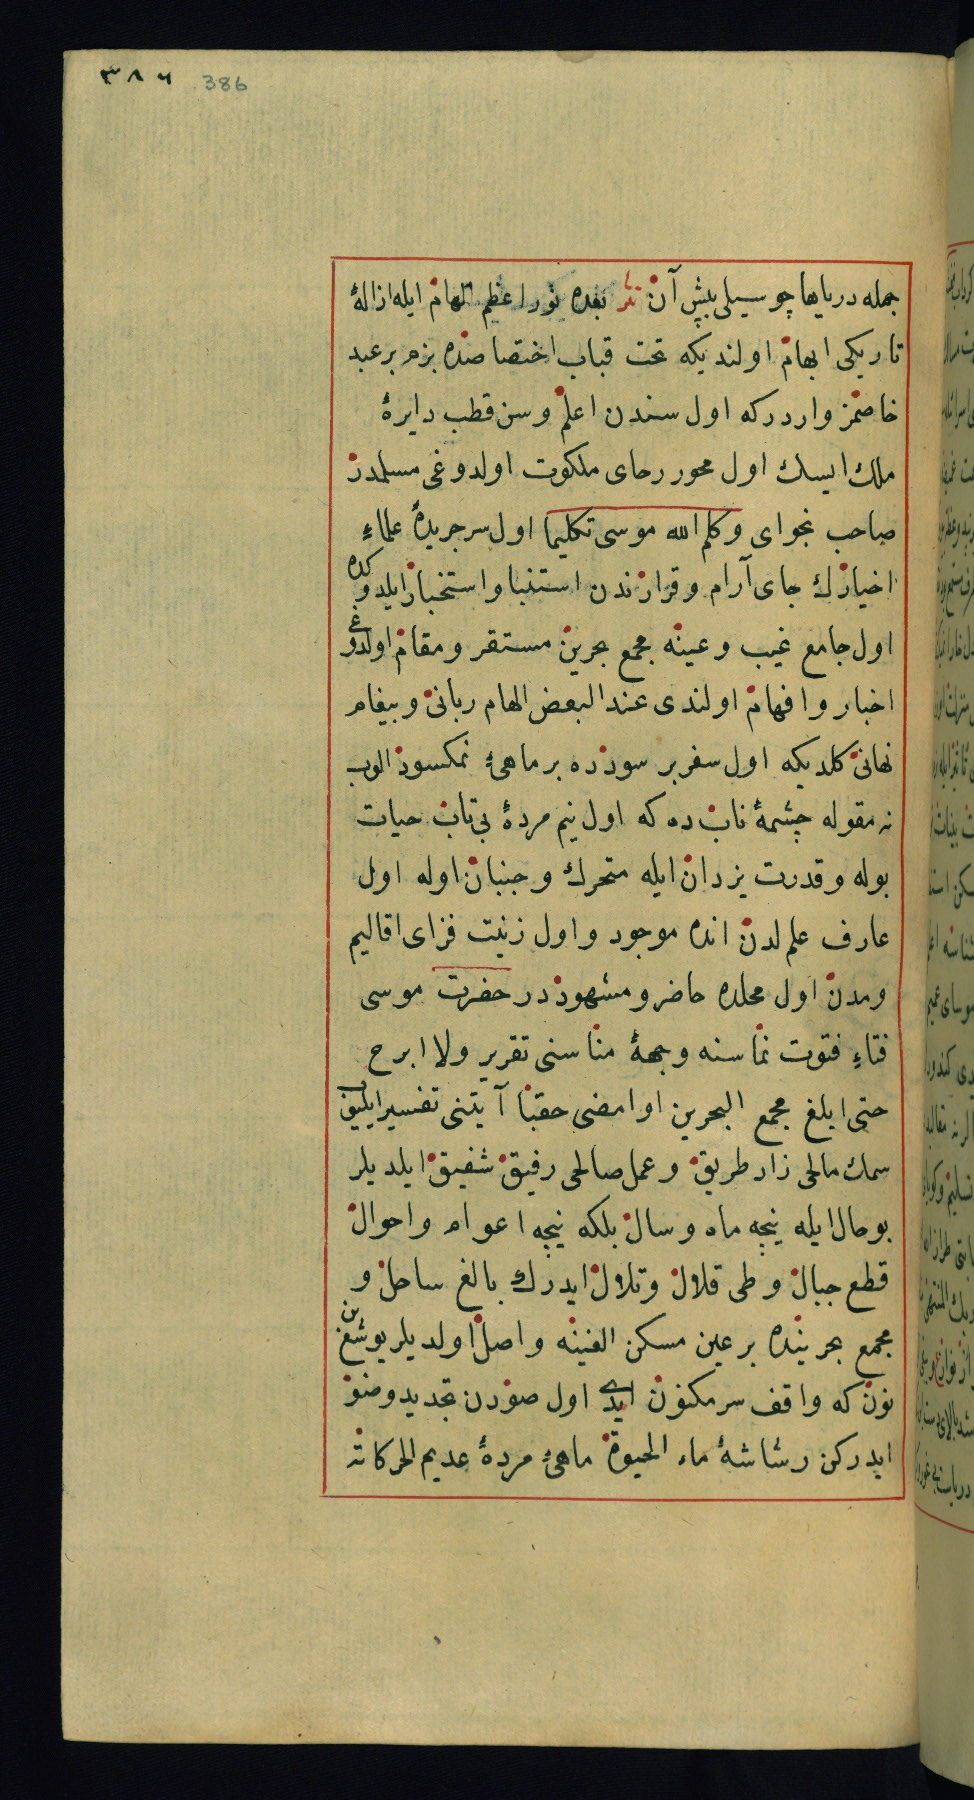 ٣٨٦ 386
جمله دریاها چو سیلی پیش آن نثر بعده نور اعظم الهام ایله ازالۀ
تاریکی ابهام اولندیکه تحت قباب اختصاصده بزم بر عبد
خاصمز واردر که اول سندن اعلم و سن قطب دایرۀ
ملک ایسك اول محور رحای ملکوت اولدوغی مسلمدر
صاحب نجوای وکلم الله موسی تکلیما اول سر جریدۀ علماءِ
اخیارك جای آرام و قرارندن استنبا و استخبار ایلدوکده
اول جامع غیب و عینه مجمع بحرین مستقر و مقام اولدوغی
اخبار و افهام اولندی عند البعض الهام ربانی و پیغام
نهانی کلدیکه اول سفر بر سوزده بر ماهیٔ نمکسود الوب
نه مقوله چشمۀ ناب ده که اول نیم مردۀ بی تاب حیات
بوله و قدرت یزدان ایله متحرك و جنبان اوله اول
عارف علم لدن انده موجود و اول زینت فزای اقالیم
و مدن اول محلده حاضر و مشهوددر حضرت موسی
فتاءِ فتوت نماسنه وجهۀ مناسنی تقریر و لا ابرح
حتی ابلغ مجمع البحرین او امضی حقبا آیتنی تفسیر ایلیوب
سمك مالحی زاد طریق و عمل صالحی رفیق شفیق ایلدیلر
بو حال ایله نیجه ماه و سال بلکه نیجه اعوام و احوال
قطع جبال و طی قلال و تلال ایدرك بالغ ساحل و
مجمع بحرینده بر عین مسکن الفینه واصل اولدیلر یوشع بن
نون که واقف سر مکنون ایدی اول صودن تجدید وضو
ایدرکن رشاشۀ ماء الحیوة ماهیٔ مردۀ عدیم الحرکاته